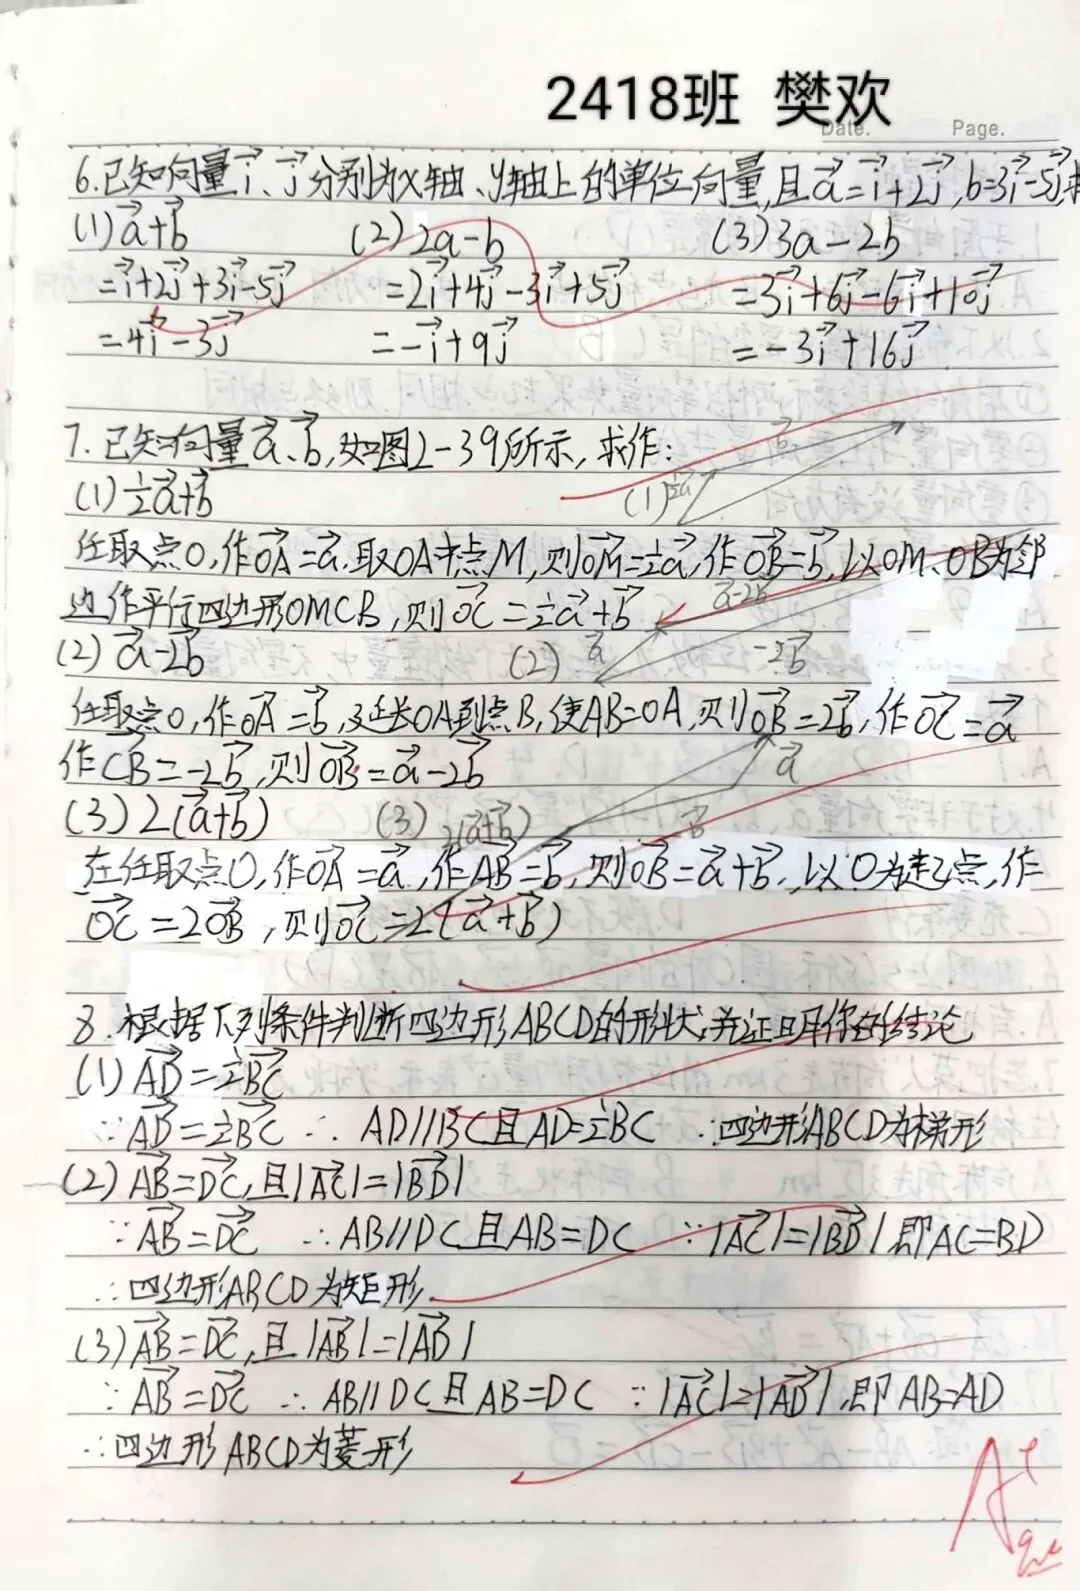 2418班 樊欢
Date. Page.
6.已知向量i⃗、j⃗分别为x轴、y轴上的单位向量,且a⃗=i⃗+2j⃗,b=3i⃗-5j⃗,求
(1)a⃗+b⃗ (2)2a-b (3)3a-2b
=i⃗+2j⃗+3i⃗-5j⃗ =2i⃗+4j⃗-3i⃗+5j⃗ =3i⃗+6j⃗-6i⃗+10j⃗
=4i⃗-3j⃗ =-i⃗+9j⃗ =-3i⃗+16j⃗
7.已知向量a⃗、b⃗,如图2-39所示,求作: b⃗
(1)½a⃗+b⃗ (1)½a⃗
任取点O,作OA⃗=a⃗,取OA中点M,则OM⃗=½a⃗,作OB⃗=b⃗,以OM、OB为邻
边作平行四边形OMCB,则OC⃗=½a⃗+b⃗ a⃗-2b⃗
(2)a⃗-2b⃗ (2) a⃗ -2b⃗
任取点O,作OA⃗=b⃗,延长OA到点B,使AB=OA,则OB⃗=2b⃗,作OC⃗=a⃗
作CB⃗=-2b⃗,则OB⃗=a⃗-2b⃗ a⃗
(3)2(a⃗+b⃗) (3) 2(a⃗+b⃗) b⃗
在任取点O,作OA⃗=a⃗,作AB⃗=b⃗,则OB⃗=a⃗+b⃗,以O为起点,作
OC⃗=2OB⃗,则OC⃗=2(a⃗+b⃗)
8.根据下列条件判断四边形ABCD的形状,并证明你的结论
(1)AD⃗=½BC⃗
∵AD⃗=½BC⃗ ∴AD//BC且AD=½BC ∴四边形ABCD为梯形
(2)AB⃗=DC⃗,且|AC⃗|=|BD⃗|
∵AB⃗=DC⃗ ∴AB//DC且AB=DC ∵|AC⃗|=|BD⃗|,即AC=BD
∴四边形ABCD为矩形
(3)AB⃗=DC⃗,且|AB⃗|=|AD⃗|
∵AB⃗=DC⃗ ∴AB//DC且AB=DC ∵|AC⃗|=|AD⃗|,即AB=AD
∴四边形ABCD为菱形
A+